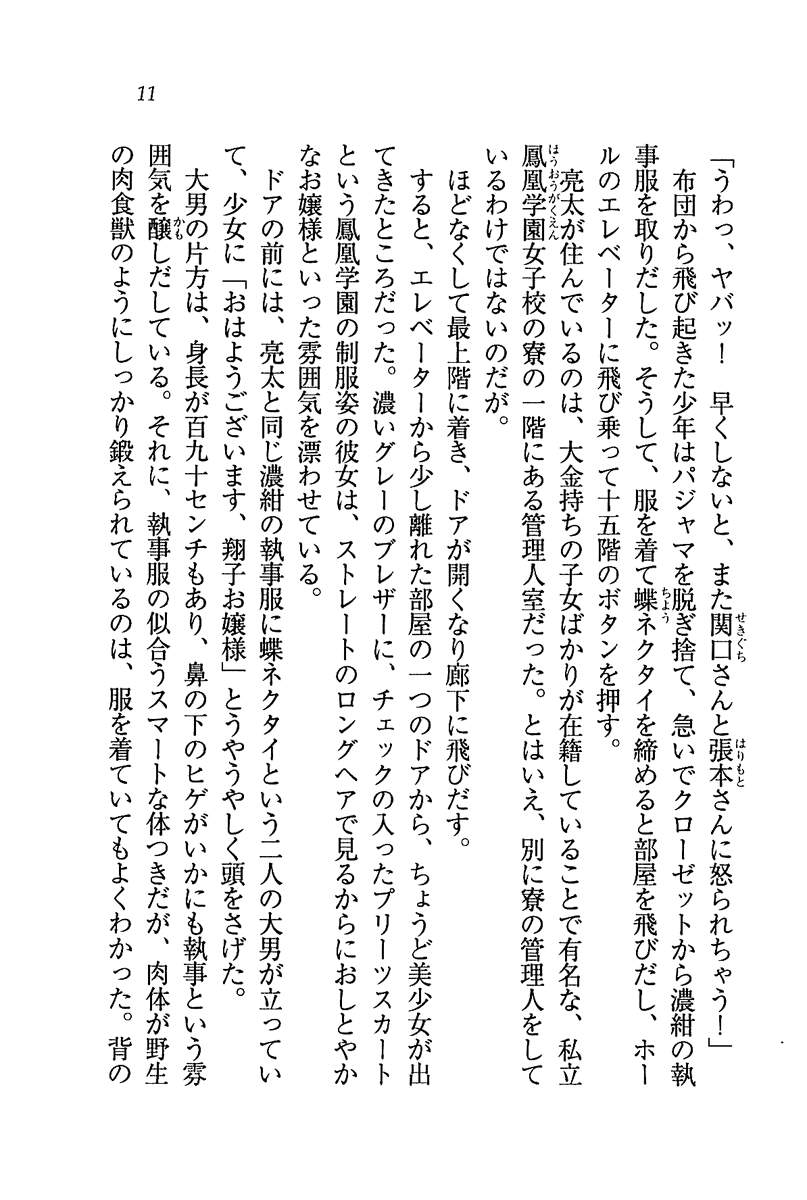 11
「うわっ、ヤバッ！　早くしないと、また関口さんと張本さんに怒られちゃう！」
　布団から飛び起きた少年はパジャマを脱ぎ捨て、急いでクローゼットから濃紺の執
事服を取りだした。そうして、服を着て蝶ネクタイを締めると部屋を飛びだし、ホー
ルのエレベーターに飛び乗って十五階のボタンを押す。
　亮太が住んでいるのは、大金持ちの子女ばかりが在籍していることで有名な、私立
鳳凰学園女子校の寮の一階にある管理人室だった。とはいえ、別に寮の管理人をして
いるわけではないのだが。
　ほどなくして最上階に着き、ドアが開くなり廊下に飛びだす。
　すると、エレベーターから少し離れた部屋の一つのドアから、ちょうど美少女が出
てきたところだった。濃いグレーのブレザーに、チェックの入ったプリーツスカート
という鳳凰学園の制服姿の彼女は、ストレートのロングヘアで見るからにおしとやか
なお嬢様といった雰囲気を漂わせている。
　ドアの前には、亮太と同じ濃紺の執事服に蝶ネクタイという二人の大男が立ってい
て、少女に「おはようございます、翔子お嬢様」とうやうやしく頭をさげた。
　大男の片方は、身長が百九十センチもあり、鼻の下のヒゲがいかにも執事という雰
囲気を醸しだしている。それに、執事服の似合うスマートな体つきだが、肉体が野生
の肉食獣のようにしっかり鍛えられているのは、服を着ていてもよくわかった。背の
せきぐち
はりもと
ちょう
ほうおうがくえん
かも